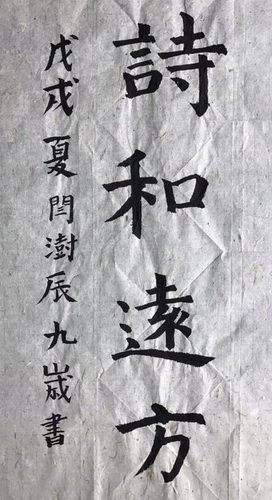 詩和遠方
戊戌夏閆澍辰九歲書